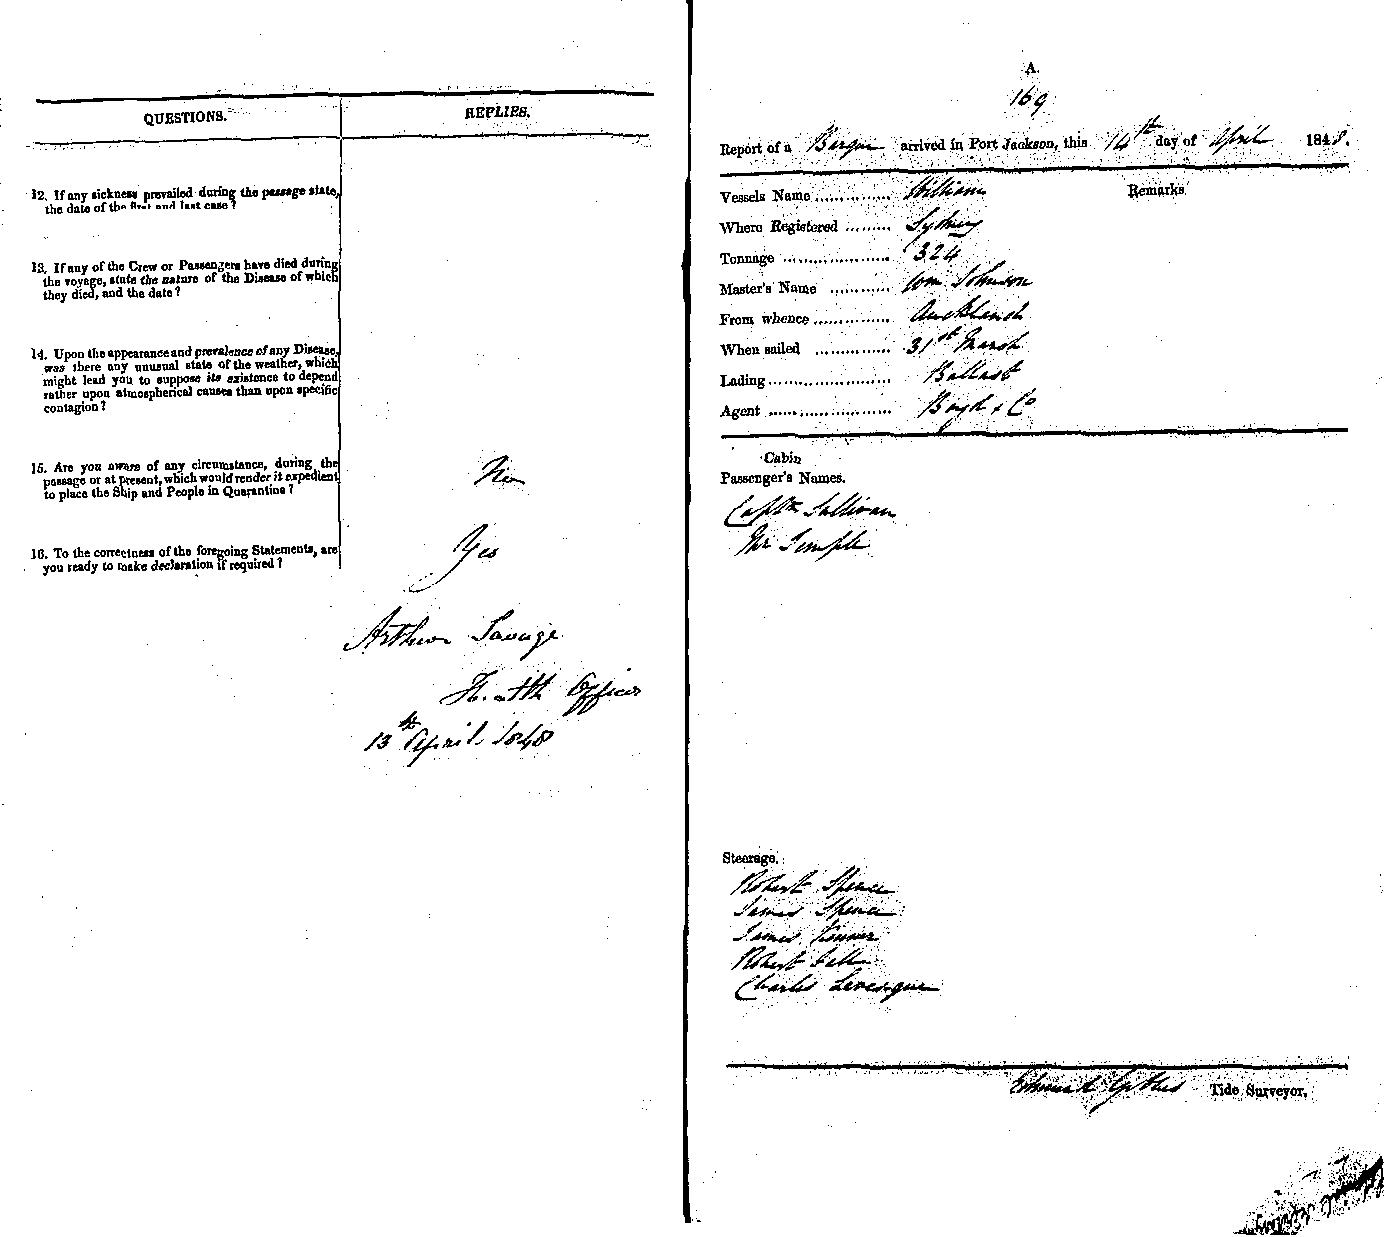 QUESTIONS.
REPLIES.
12. If any sickness prevailed during the passage state,
the date of the first and last case?
13. If any of the Crew or Passengers have died during
the voyage, state the nature of the Disease of which
they died, and the date?
14. Upon the appearance and prevalence of any Disease,
was there any unusual state of the weather, which
might lead you to suppose its existence to depend
rather upon atmospherical causes than upon specific
contagion?
15. Are you aware of any circumstance, during the
passage or at present, which would render it expedient
to place the Ship and People in Quarantine?
No
16. To the correctness of the foregoing Statements, are
you ready to make declaration if required?
Yes
Arthur Savage
Health Officer
13th April 1848
A.
169
Report of a Barque arrived in Port Jackson, this 14th day of April 1848.
Vessels Name .............. William
Remarks
Where Registered ......... Sydney
Tonnage ..................... 324
Master's Name ............ Wm Johnson
From whence ............... Auckland
When sailed ............... 31st March
Lading........................ Ballast
Agent ........................ Boyd & Co
Cabin
Passenger's Names.
Captn Sullivan
Mr Temple
Steerage.
Robert Spence
James Spence
James
Robert
Charles Levesque
Tide Surveyor.